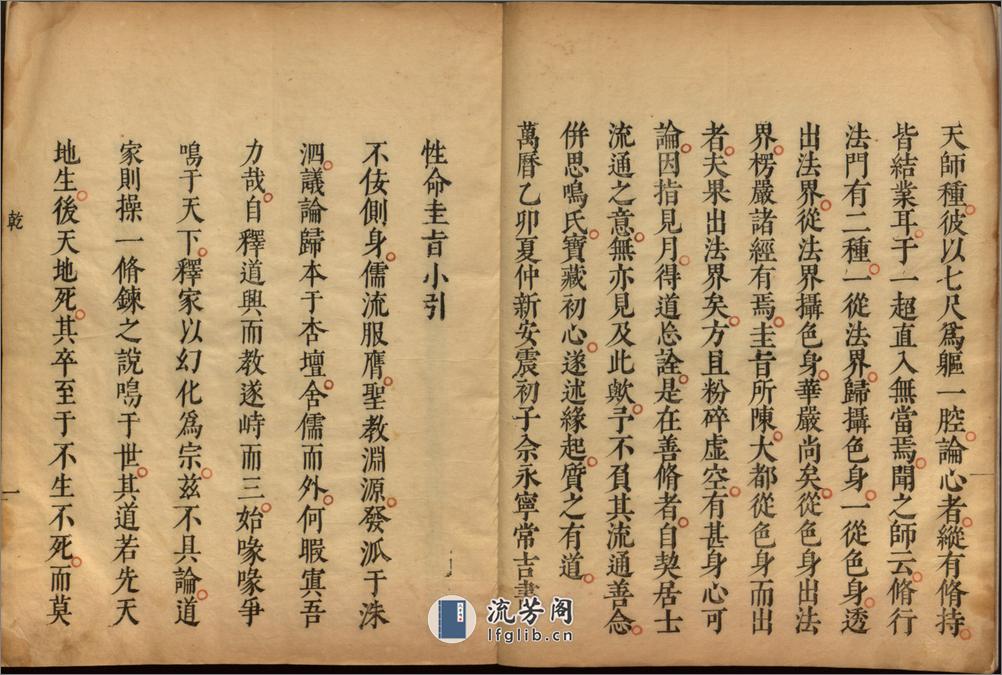 天師種彼以七尺爲軀一腔論心者縱有脩持
皆結業耳于一超直入無當焉聞之師云脩行
法門有二種一從法界歸攝色身一從色身透
出法界從法界攝色身華嚴尚矣從色身出法
界楞嚴諸經有焉圭旨所陳大都從色身而出
者夫果出法界矣方且粉碎虛空有甚身心可
論因指見月得道忩詮是在善脩者自契居士
流通之意無亦見及此歟予不負其流通善念
併思鳴氏寶藏初心遂述緣起質之有道
萬曆乙卯夏仲新安震初子余永寧常吉書
性命圭旨小引
不佞側身儒流服膺聖教淵源發泒于洙
泗議論歸本于杏壇舍儒而外何暇寘吾
力哉自釋道興而教遂峙而三始喙喙爭
鳴于天下釋家以幻化爲宗茲不具論道
家則操一脩鍊之說鳴于世其道若先天
地生後天地死其卒至于不生不死而莫
乾
一
流芳阁
lfglib.cn